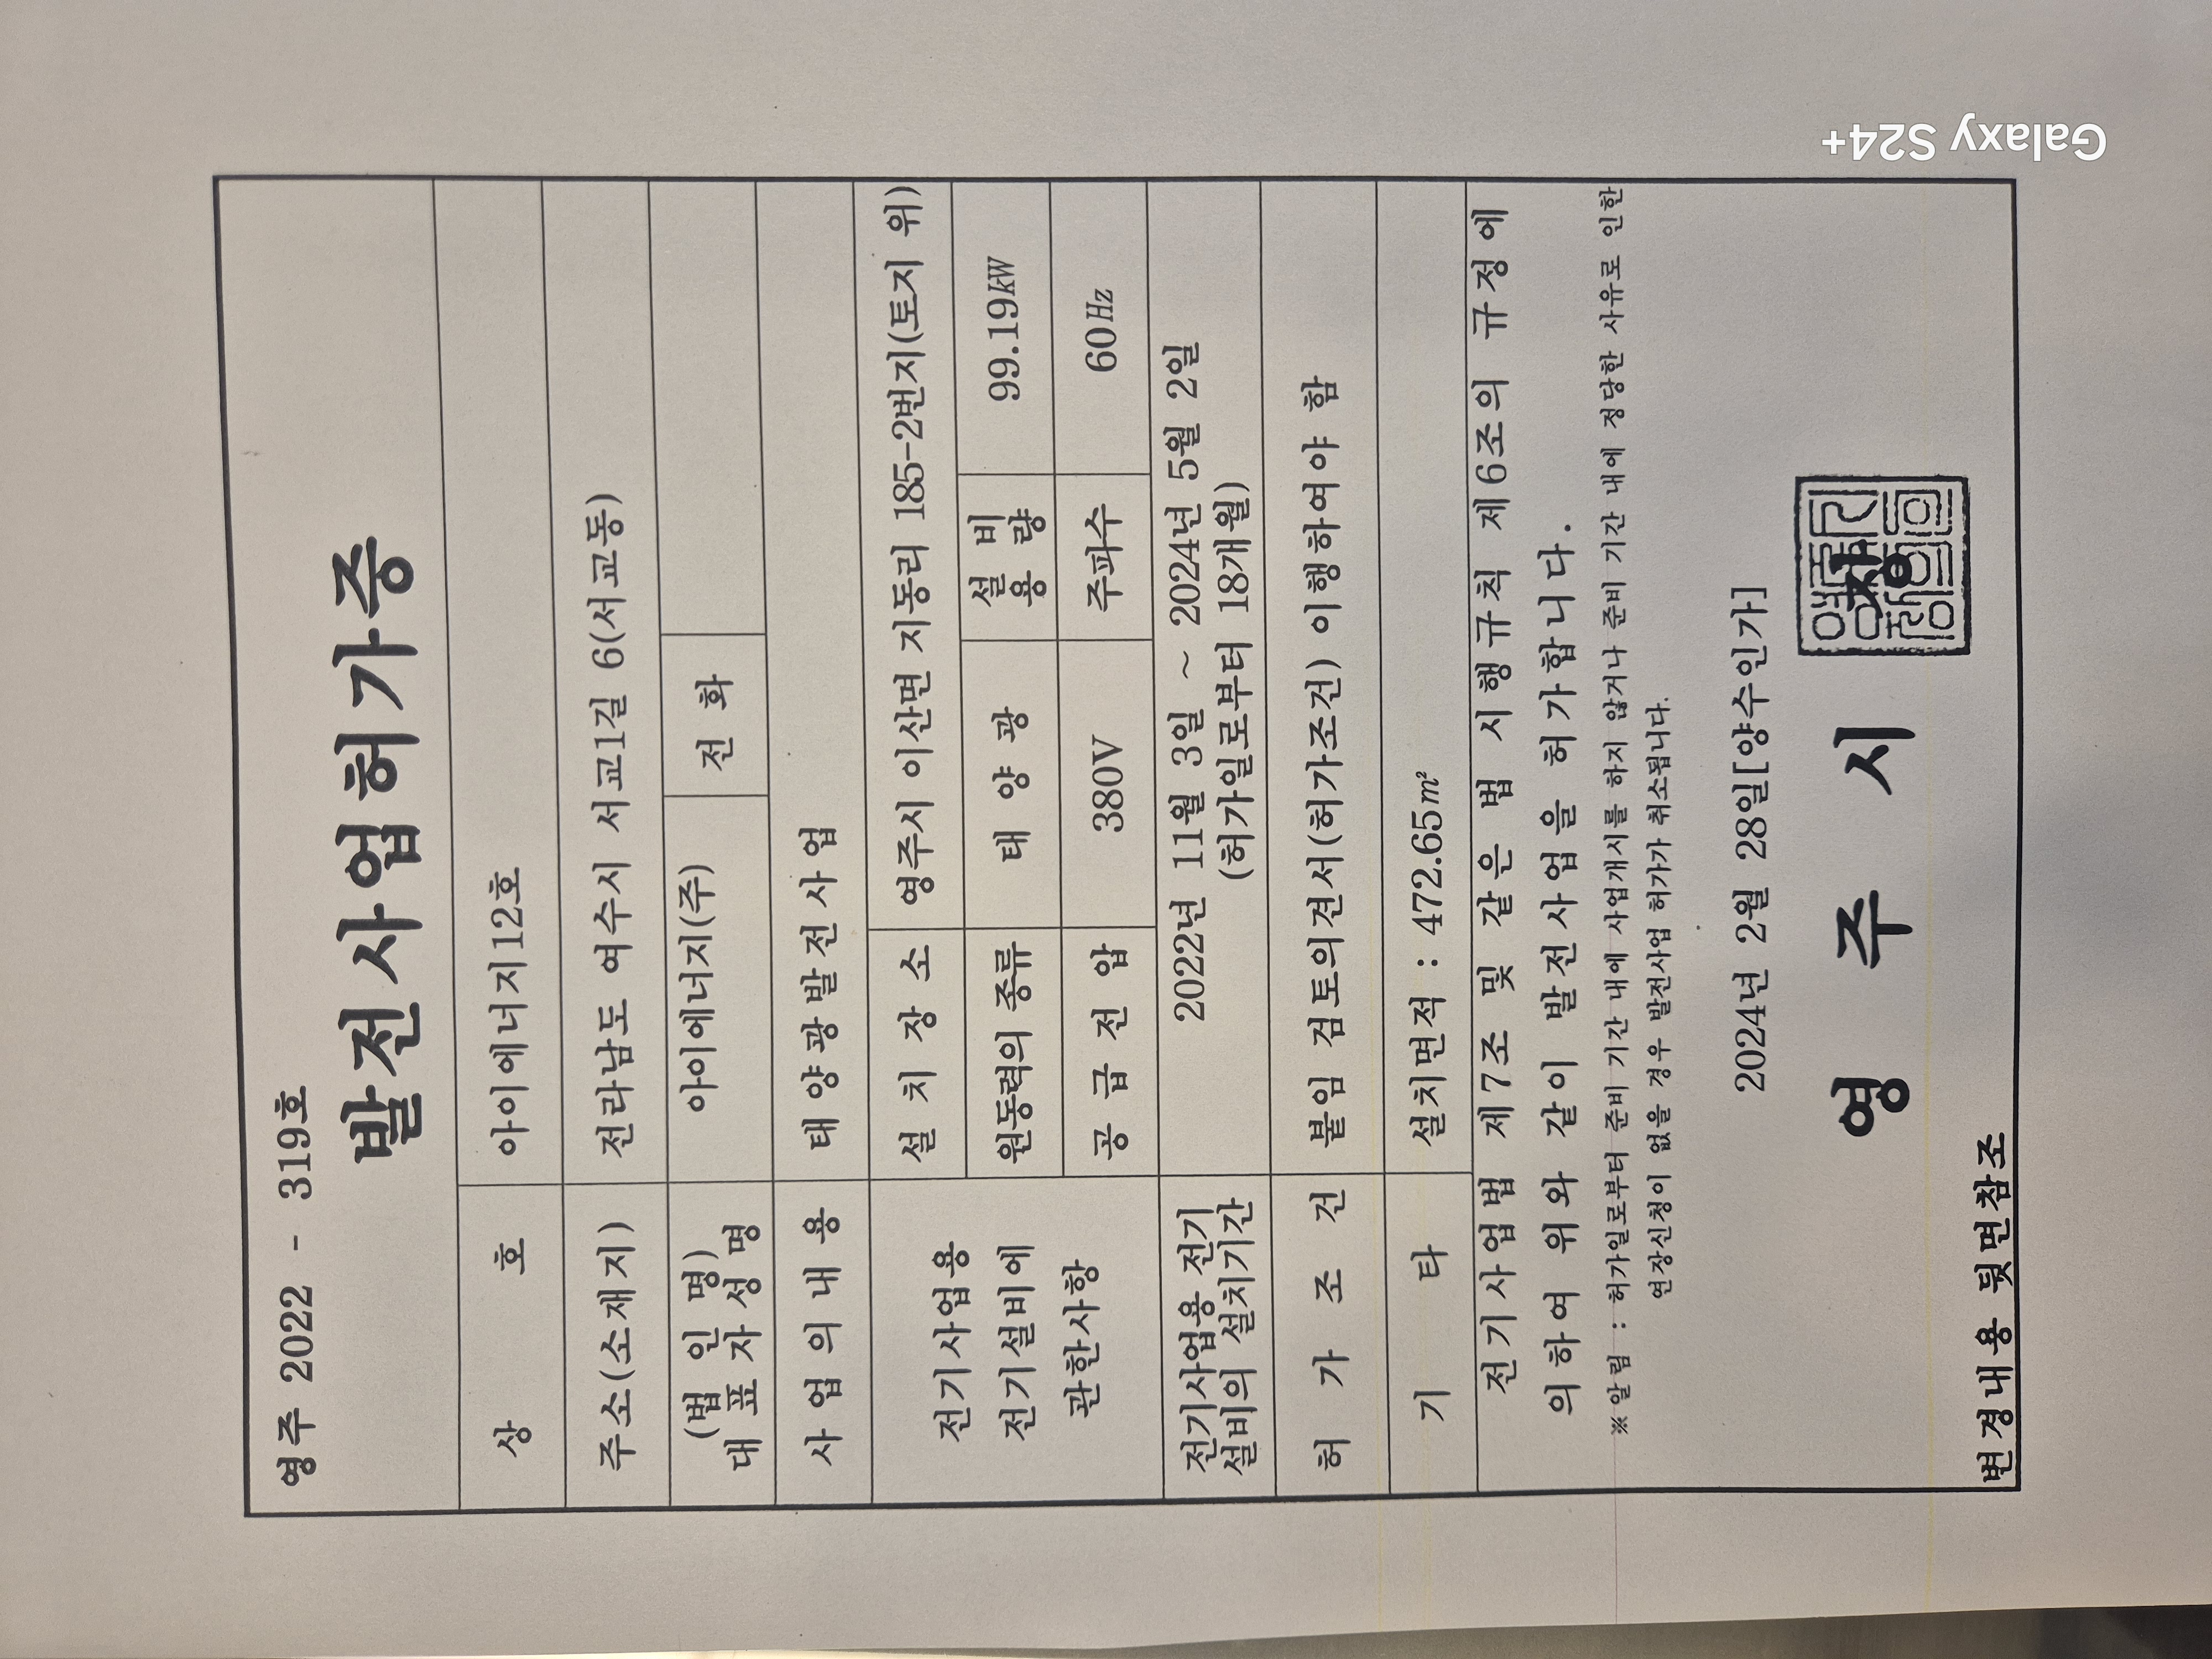 영주 2022 - 319호
발전사업허가증
상 호 아이에너지12호
주소(소재지) 전라남도 여수시 서교1길 6(서교동)
(법 인 명)
대 표 자 성 명 아이에너지(주) 전 화
사 업 의 내 용 태 양 광 발 전 사 업
전기사업용
전기설비에
관한사항
설 치 장 소 영주시 이산면 지동리 185-2번지(토지 위)
원동력의 종류 태 양 광 설 비
용 량 99.19㎾
공 급 전 압 380V 주파수 60㎐
전기사업용 전기
설비의 설치기간
2022년 11월 3일 ~ 2024년 5월 2일
(허가일로부터 18개월)
허 가 조 건 붙임 검토의견서(허가조건) 이행하여야 함
기 타 설치면적 : 472.65㎡
전기사업법 제7조 및 같은 법 시행규칙 제6조의 규정에
의하여 위와 같이 발전사업을 허가합니다.
※알림 : 허가일로부터 준비 기간 내에 사업개시를 하지 않거나 준비 기간 내에 정당한 사유로 인한
연장신청이 없을 경우 발전사업 허가가 취소됩니다.
2024년 2월 28일[양수인가]
영 주 시 장
변경내용 뒷면참조
Galaxy S24+